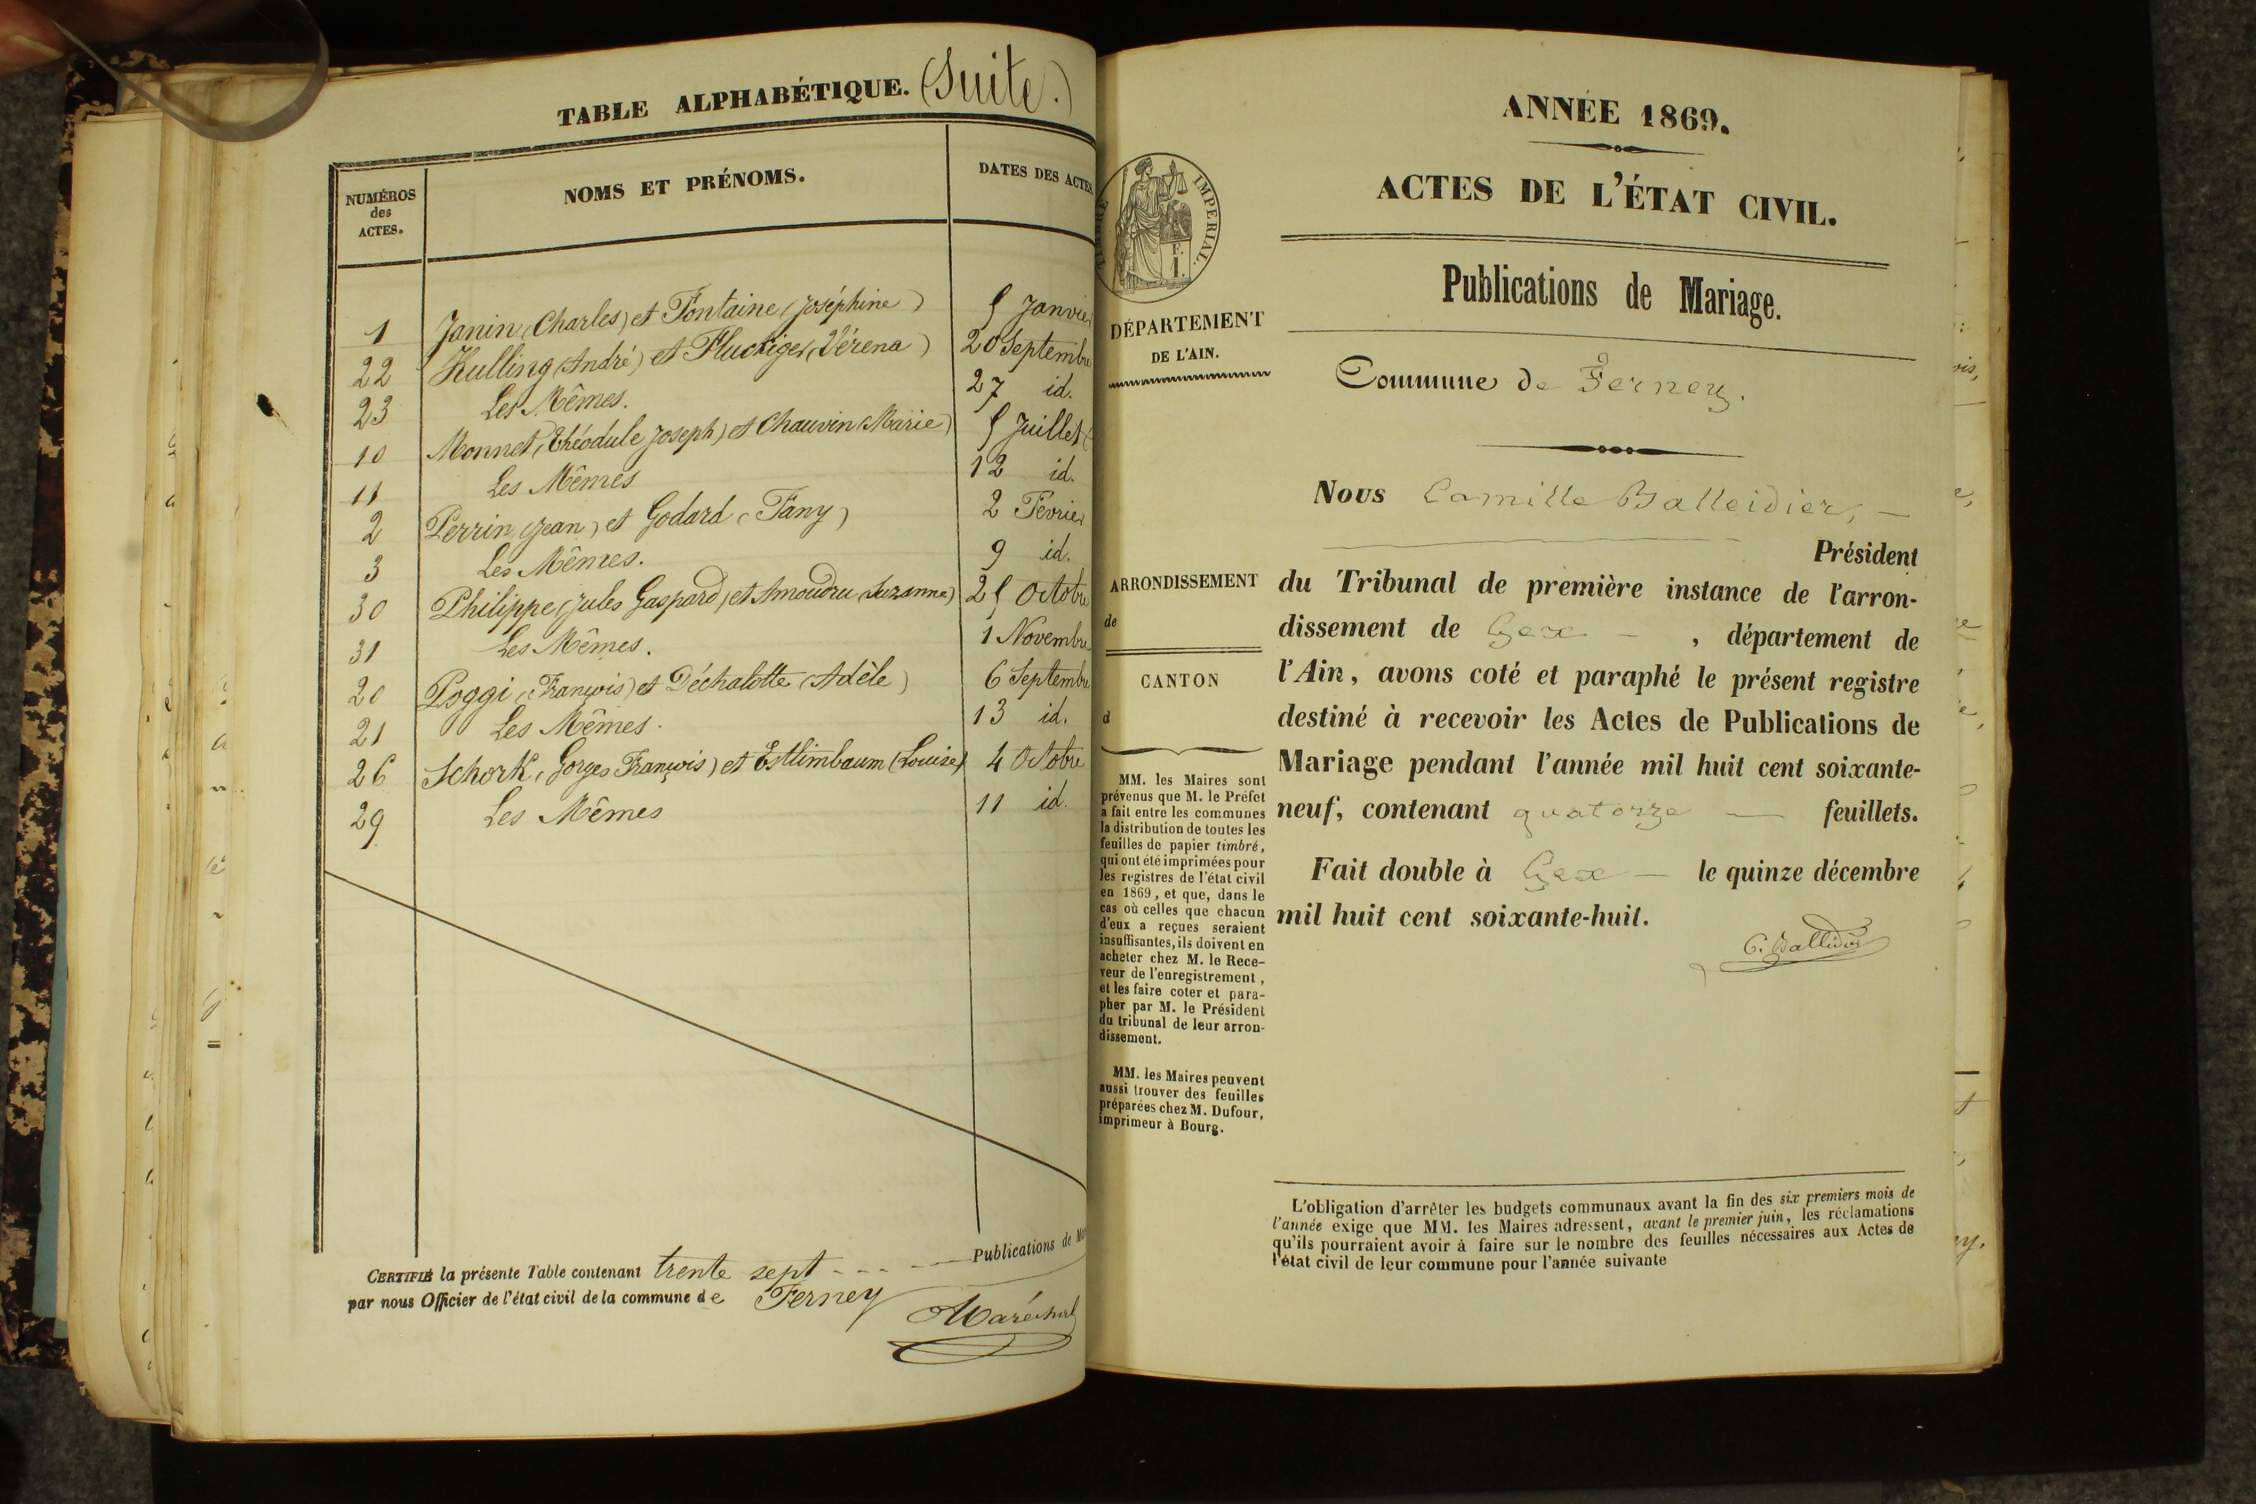 TABLE ALPHABÉTIQUE. (Suite.)
NUMÉROS des ACTES. NOMS ET PRÉNOMS. DATES DES ACTES
1 Janin (Charles) et Fontaine (Joséphine) 5 Janvier
22 Kulling (André) et Fluckiger (Vérena) 20 Septembre
23 Les Mêmes. 27 id.
10 Monnet (Théodule Joseph) et Chauvin (Marie) 5 Juillet
11 Les Mêmes 12 id.
2 Perrin (Jean) et Godard (Fany) 2 Février
3 Les Mêmes. 9 id.
30 Philippe (Jules Gaspard) et Amoudru (Suzanne) 25 Octobre
31 Les Mêmes. 1 Novembre
20 Poggi (François) et Déchalotte (Adèle) 6 Septembre
21 Les Mêmes. 13 id.
26 Schork (Gorges François) et Estlimbaum (Louise) 4 Octobre
29 Les Mêmes 11 id.
CERTIFIÉ la présente Table contenant trente sept - - - - Publications de
par nous Officier de l'état civil de la commune de Ferney
Maréchal
TIMBRE IMPÉRIAL.
F.
1.
DÉPARTEMENT
DE L'AIN.
ARRONDISSEMENT
de
CANTON
d
MM. les Maires sont
prévenus que M. le Préfet
a fait entre les communes
la distribution de toutes les
feuilles de papier timbré,
qui ont été imprimées pour
les registres de l'état civil
en 1869, et que, dans le
cas où celles que chacun
d'eux a reçues seraient
insuffisantes, ils doivent en
acheter chez M. le Rece-
veur de l'enregistrement,
et les faire coter et para-
pher par M. le Président
du tribunal de leur arron-
dissement.
MM. les Maires peuvent
aussi trouver des feuilles
préparées chez M. Dufour,
imprimeur à Bourg.
ANNÉE 1869.
ACTES DE L'ÉTAT CIVIL.
Publications de Mariage.
Commune de Ferney.
Nous Camille Balleidier, —
Président
du Tribunal de première instance de l'arron-
dissement de Gex — , département de
l'Ain, avons coté et paraphé le présent registre
destiné à recevoir les Actes de Publications de
Mariage pendant l'année mil huit cent soixante-
neuf, contenant quatorze — feuillets.
Fait double à Gex — le quinze décembre
mil huit cent soixante-huit.
C. Balleidier
L'obligation d'arrêter les budgets communaux avant la fin des six premiers mois de
l'année exige que MM. les Maires adressent, avant le premier juin, les réclamations
qu'ils pourraient avoir à faire sur le nombre des feuilles nécessaires aux Actes de
l'état civil de leur commune pour l'année suivante